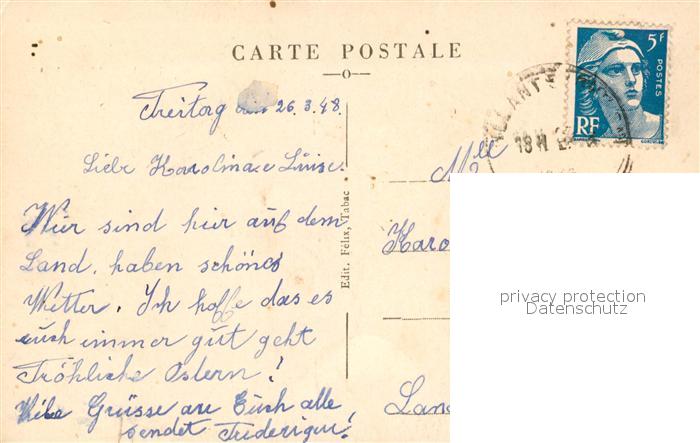 CARTE POSTALE
Freitag den 26.3.48.
Liebe Karolina e Luise.
Wier sind hier auf dem
Land, haben schönes
Wetter. Ich hoffe das es
euch immer gut geht
Fröhliche Ostern!
Viele Grüsse an Euch alle
sendet Frederique!
Edit. Félix, Tabac
5F
POSTES
RF
Mlle
Karo
Lan
privacy protection
Datenschutz